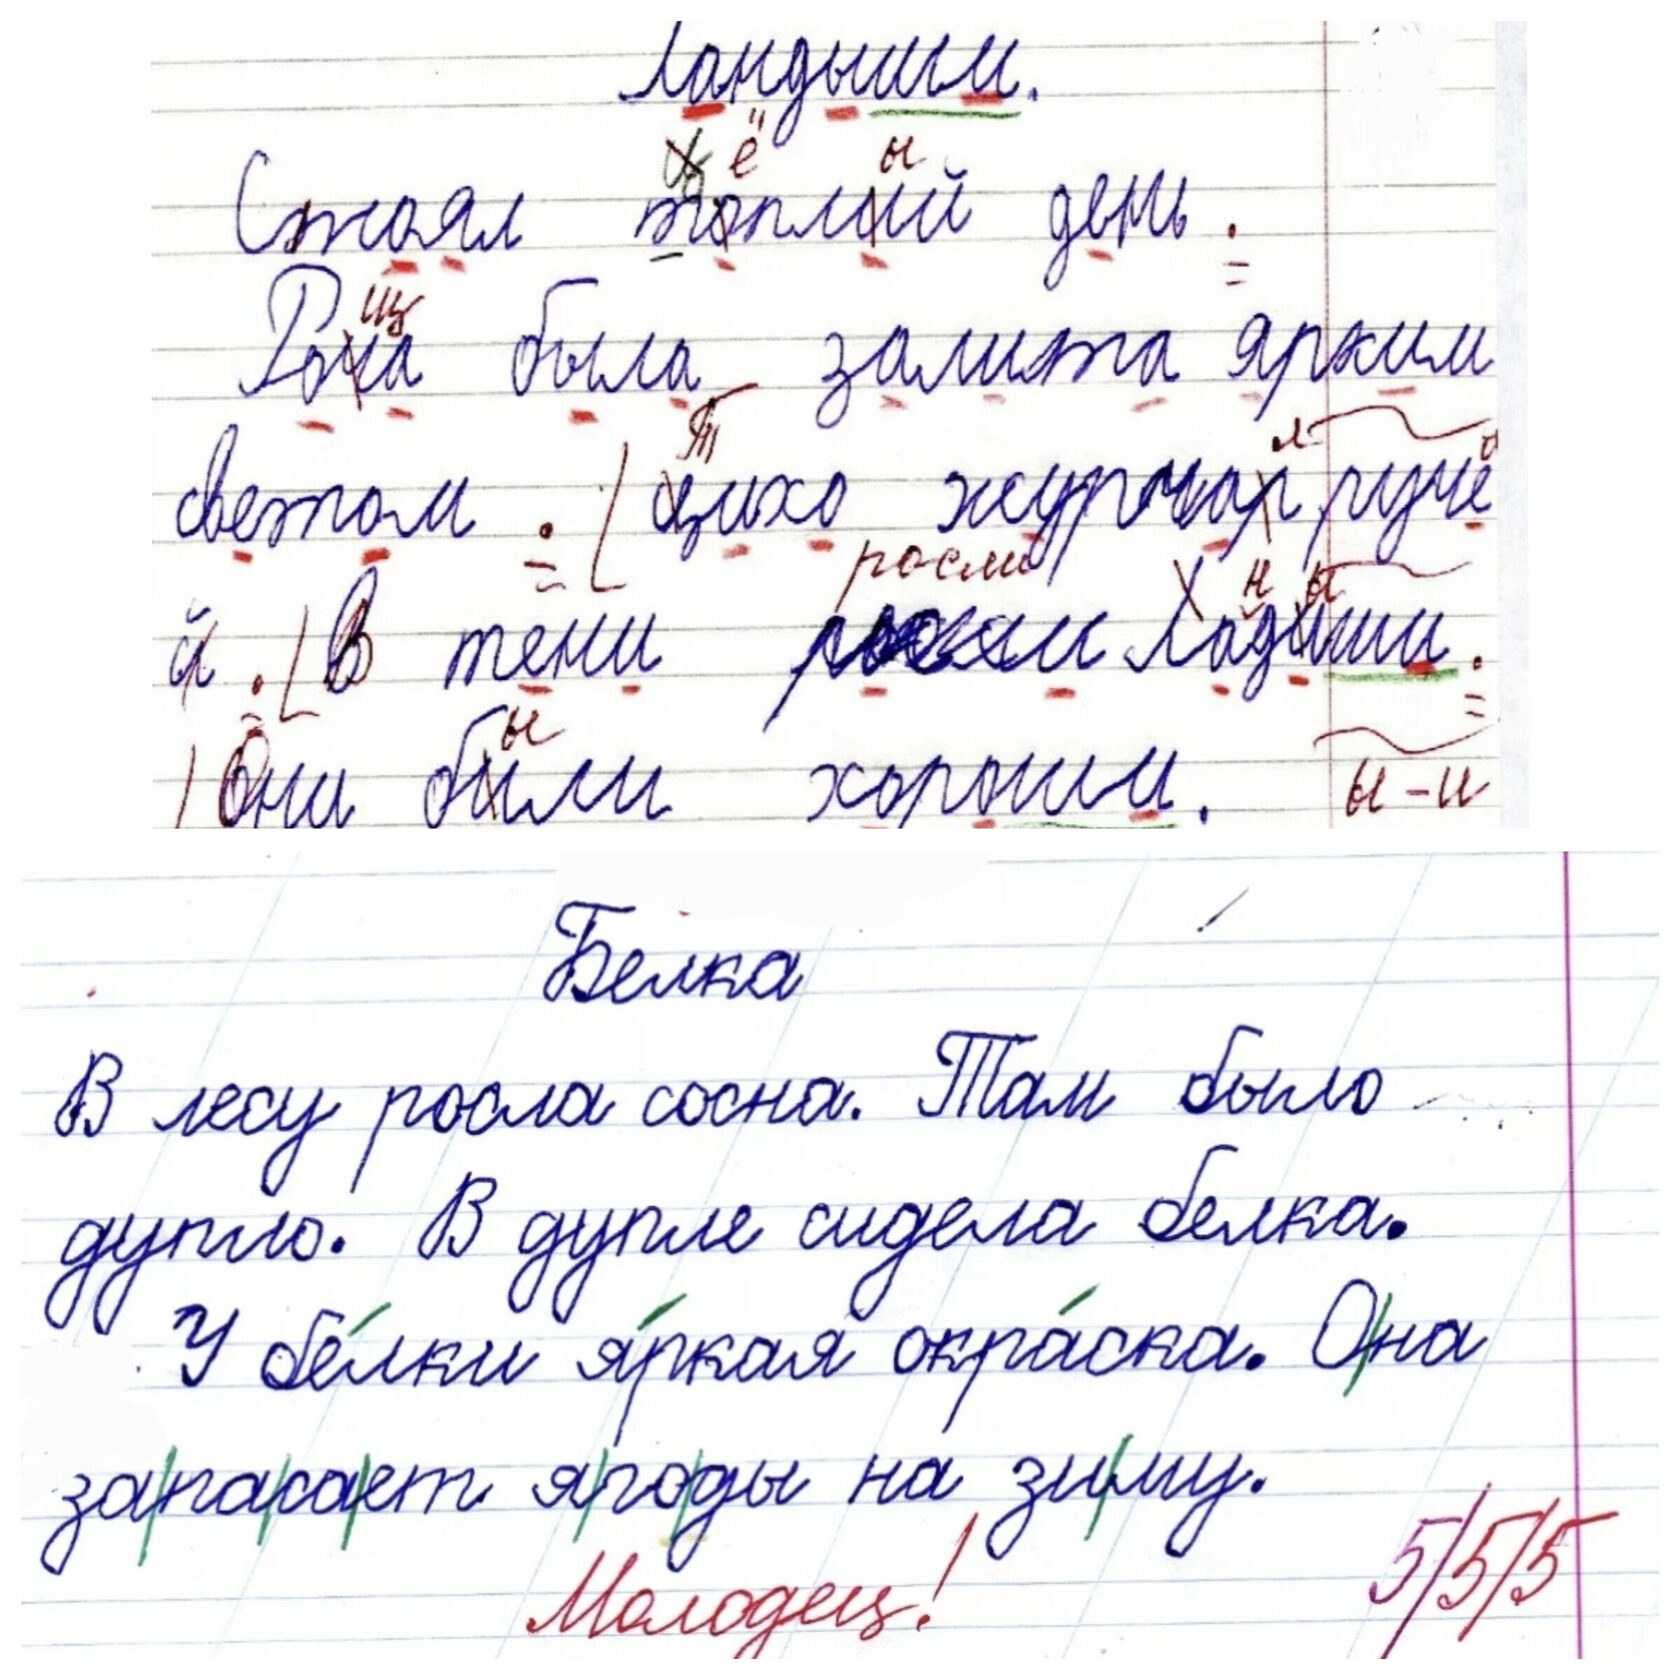 Ландыши.
ё ы
Стоял топлий день.
щ
Роча была залита ярким
т л
светом. Цихо журчар ручё
росли н ы
й. В тени росли Ладиши.
ы
Они били хороши. ы-и
Белка
В лесу росла сосна. Там было
дупло. В дупле сидела белка.
У бе́лки я́ркая окра́ска. О/на
за/па/са/ет я/го/ды на зи/му.
Молодец! 5/5/5